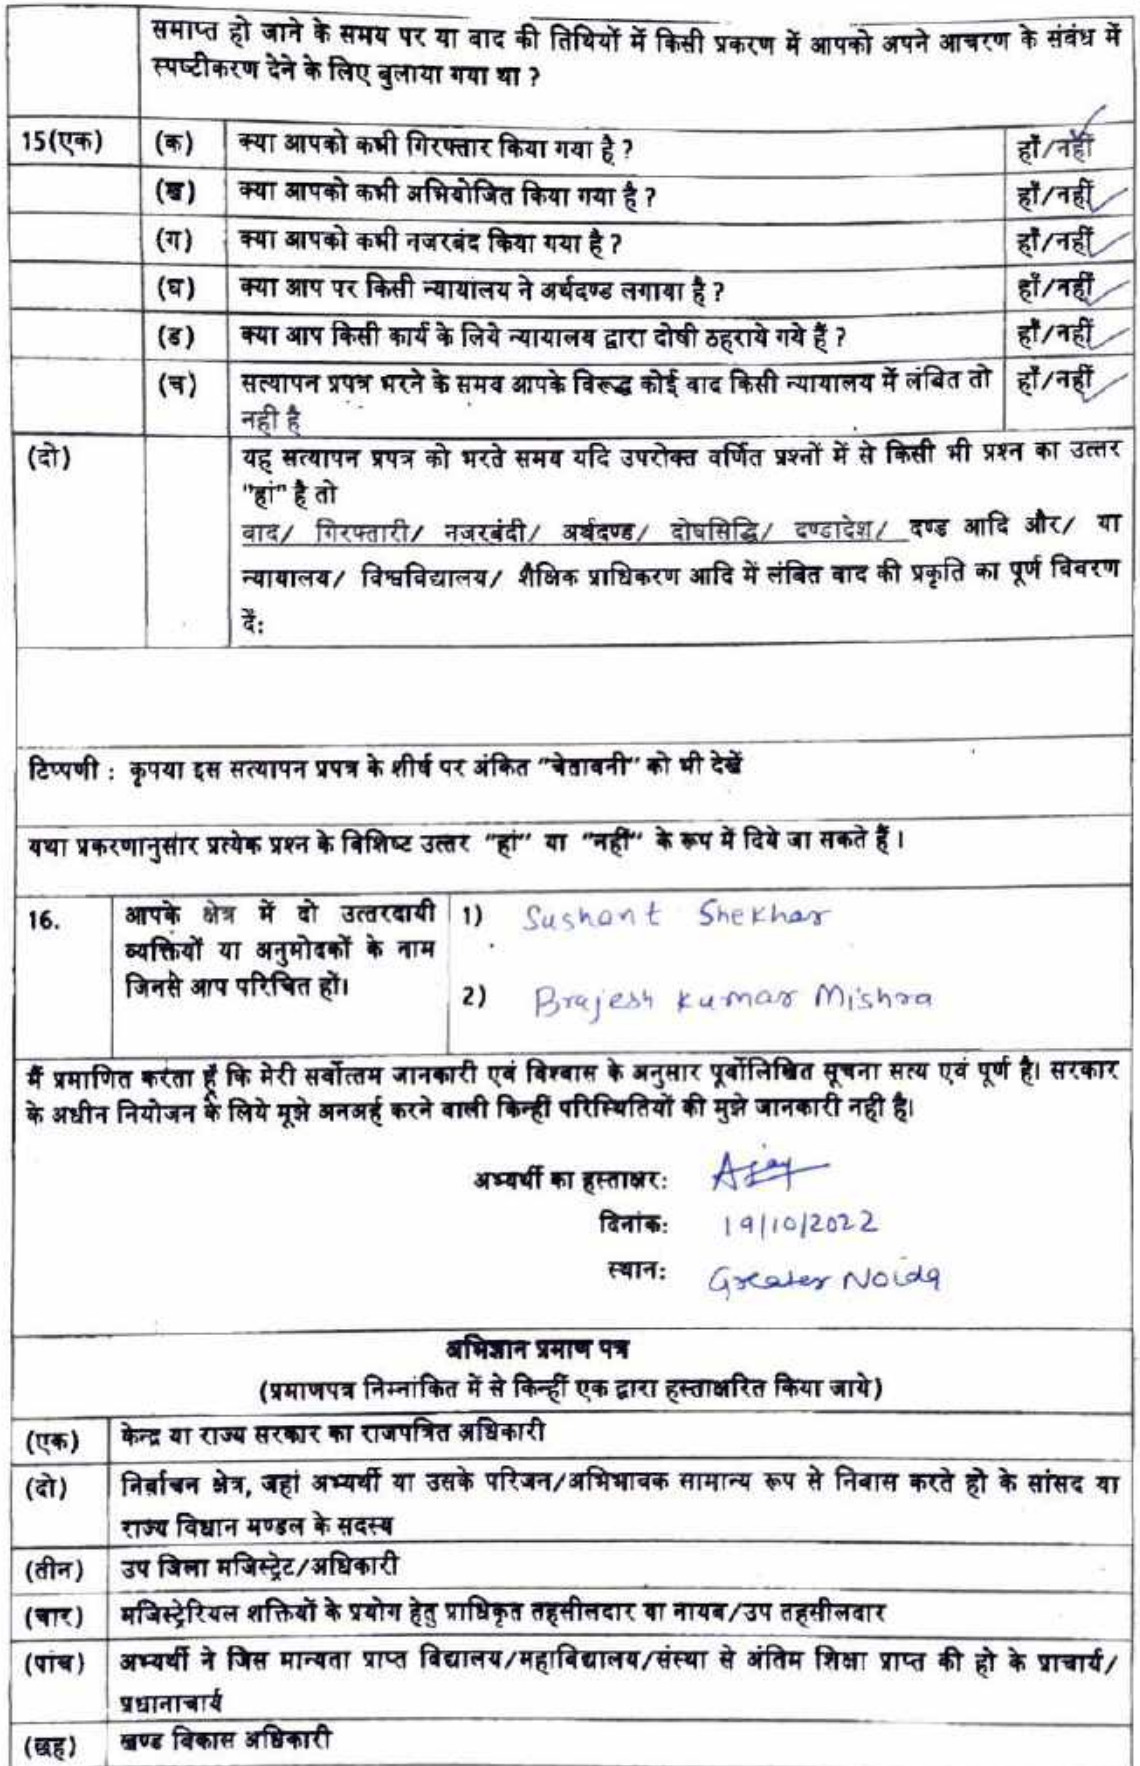 समाप्त हो जाने के समय पर या वाद की तिथियों में किसी प्रकरण में आपको अपने आचरण के संबंध में
स्पष्टीकरण देने के लिए बुलाया गया था ?
15(एक) (क) क्या आपको कभी गिरफ्तार किया गया है ? हाँ/नहीं
(ख) क्या आपको कभी अभियोजित किया गया है ? हाँ/नहीं
(ग) क्या आपको कभी नजरबंद किया गया है ? हाँ/नहीं
(घ) क्या आप पर किसी न्यायालय ने अर्थदण्ड लगाया है ? हाँ/नहीं
(ड) क्या आप किसी कार्य के लिये न्यायालय द्वारा दोषी ठहराये गये हैं ? हाँ/नहीं
(च) सत्यापन प्रपत्र भरने के समय आपके विरूद्ध कोई वाद किसी न्यायालय में लंबित तो हाँ/नहीं
नही है
(दो) यह सत्यापन प्रपत्र को भरते समय यदि उपरोक्त वर्णित प्रश्नों में से किसी भी प्रश्न का उत्तर
"हां" है तो
वाद/ गिरफ्तारी/ नजरबंदी/ अर्थदण्ड/ दोषसिद्धि/ दण्डादेश/ दण्ड आदि और/ या
न्यायालय/ विश्वविद्यालय/ शैक्षिक प्राधिकरण आदि में लंबित वाद की प्रकृति का पूर्ण विवरण
दें:
टिप्पणी : कृपया इस सत्यापन प्रपत्र के शीर्ष पर अंकित "चेतावनी" को भी देखें
यथा प्रकरणानुसार प्रत्येक प्रश्न के विशिष्ट उत्तर "हां" या "नहीं" के रूप में दिये जा सकते हैं ।
16. आपके क्षेत्र में दो उत्तरदायी 1) Sushant Shekhar
व्यक्तियों या अनुमोदकों के नाम
जिनसे आप परिचित हों। 2) Brajesh Kumar Mishra
मैं प्रमाणित करता हूँ कि मेरी सर्वोत्तम जानकारी एवं विश्वास के अनुसार पूर्वोलिखित सूचना सत्य एवं पूर्ण है। सरकार
के अधीन नियोजन के लिये मूझे अनअर्ह करने वाली किन्हीं परिस्थितियों की मुझे जानकारी नही है।
अभ्यर्थी का हस्ताक्षर: Ajay
दिनांक: 19/10/2022
स्थान: Greater Noida
अभिज्ञान प्रमाण पत्र
(प्रमाणपत्र निम्नांकित में से किन्हीं एक द्वारा हस्ताक्षरित किया जाये)
(एक) केन्द्र या राज्य सरकार का राजपत्रित अधिकारी
(दो) निर्वाचन क्षेत्र, जहां अभ्यर्थी या उसके परिजन/अभिभावक सामान्य रूप से निवास करते हो के सांसद या
राज्य विधान मण्डल के सदस्य
(तीन) उप जिला मजिस्ट्रेट/अधिकारी
(चार) मजिस्ट्रेरियल शक्तियों के प्रयोग हेतु प्राधिकृत तहसीलदार या नायब/उप तहसीलदार
(पांच) अभ्यर्थी ने जिस मान्यता प्राप्त विद्यालय/महाविद्यालय/संस्था से अंतिम शिक्षा प्राप्त की हो के प्राचार्य/
प्रधानाचार्य
(छह) खण्ड विकास अधिकारी